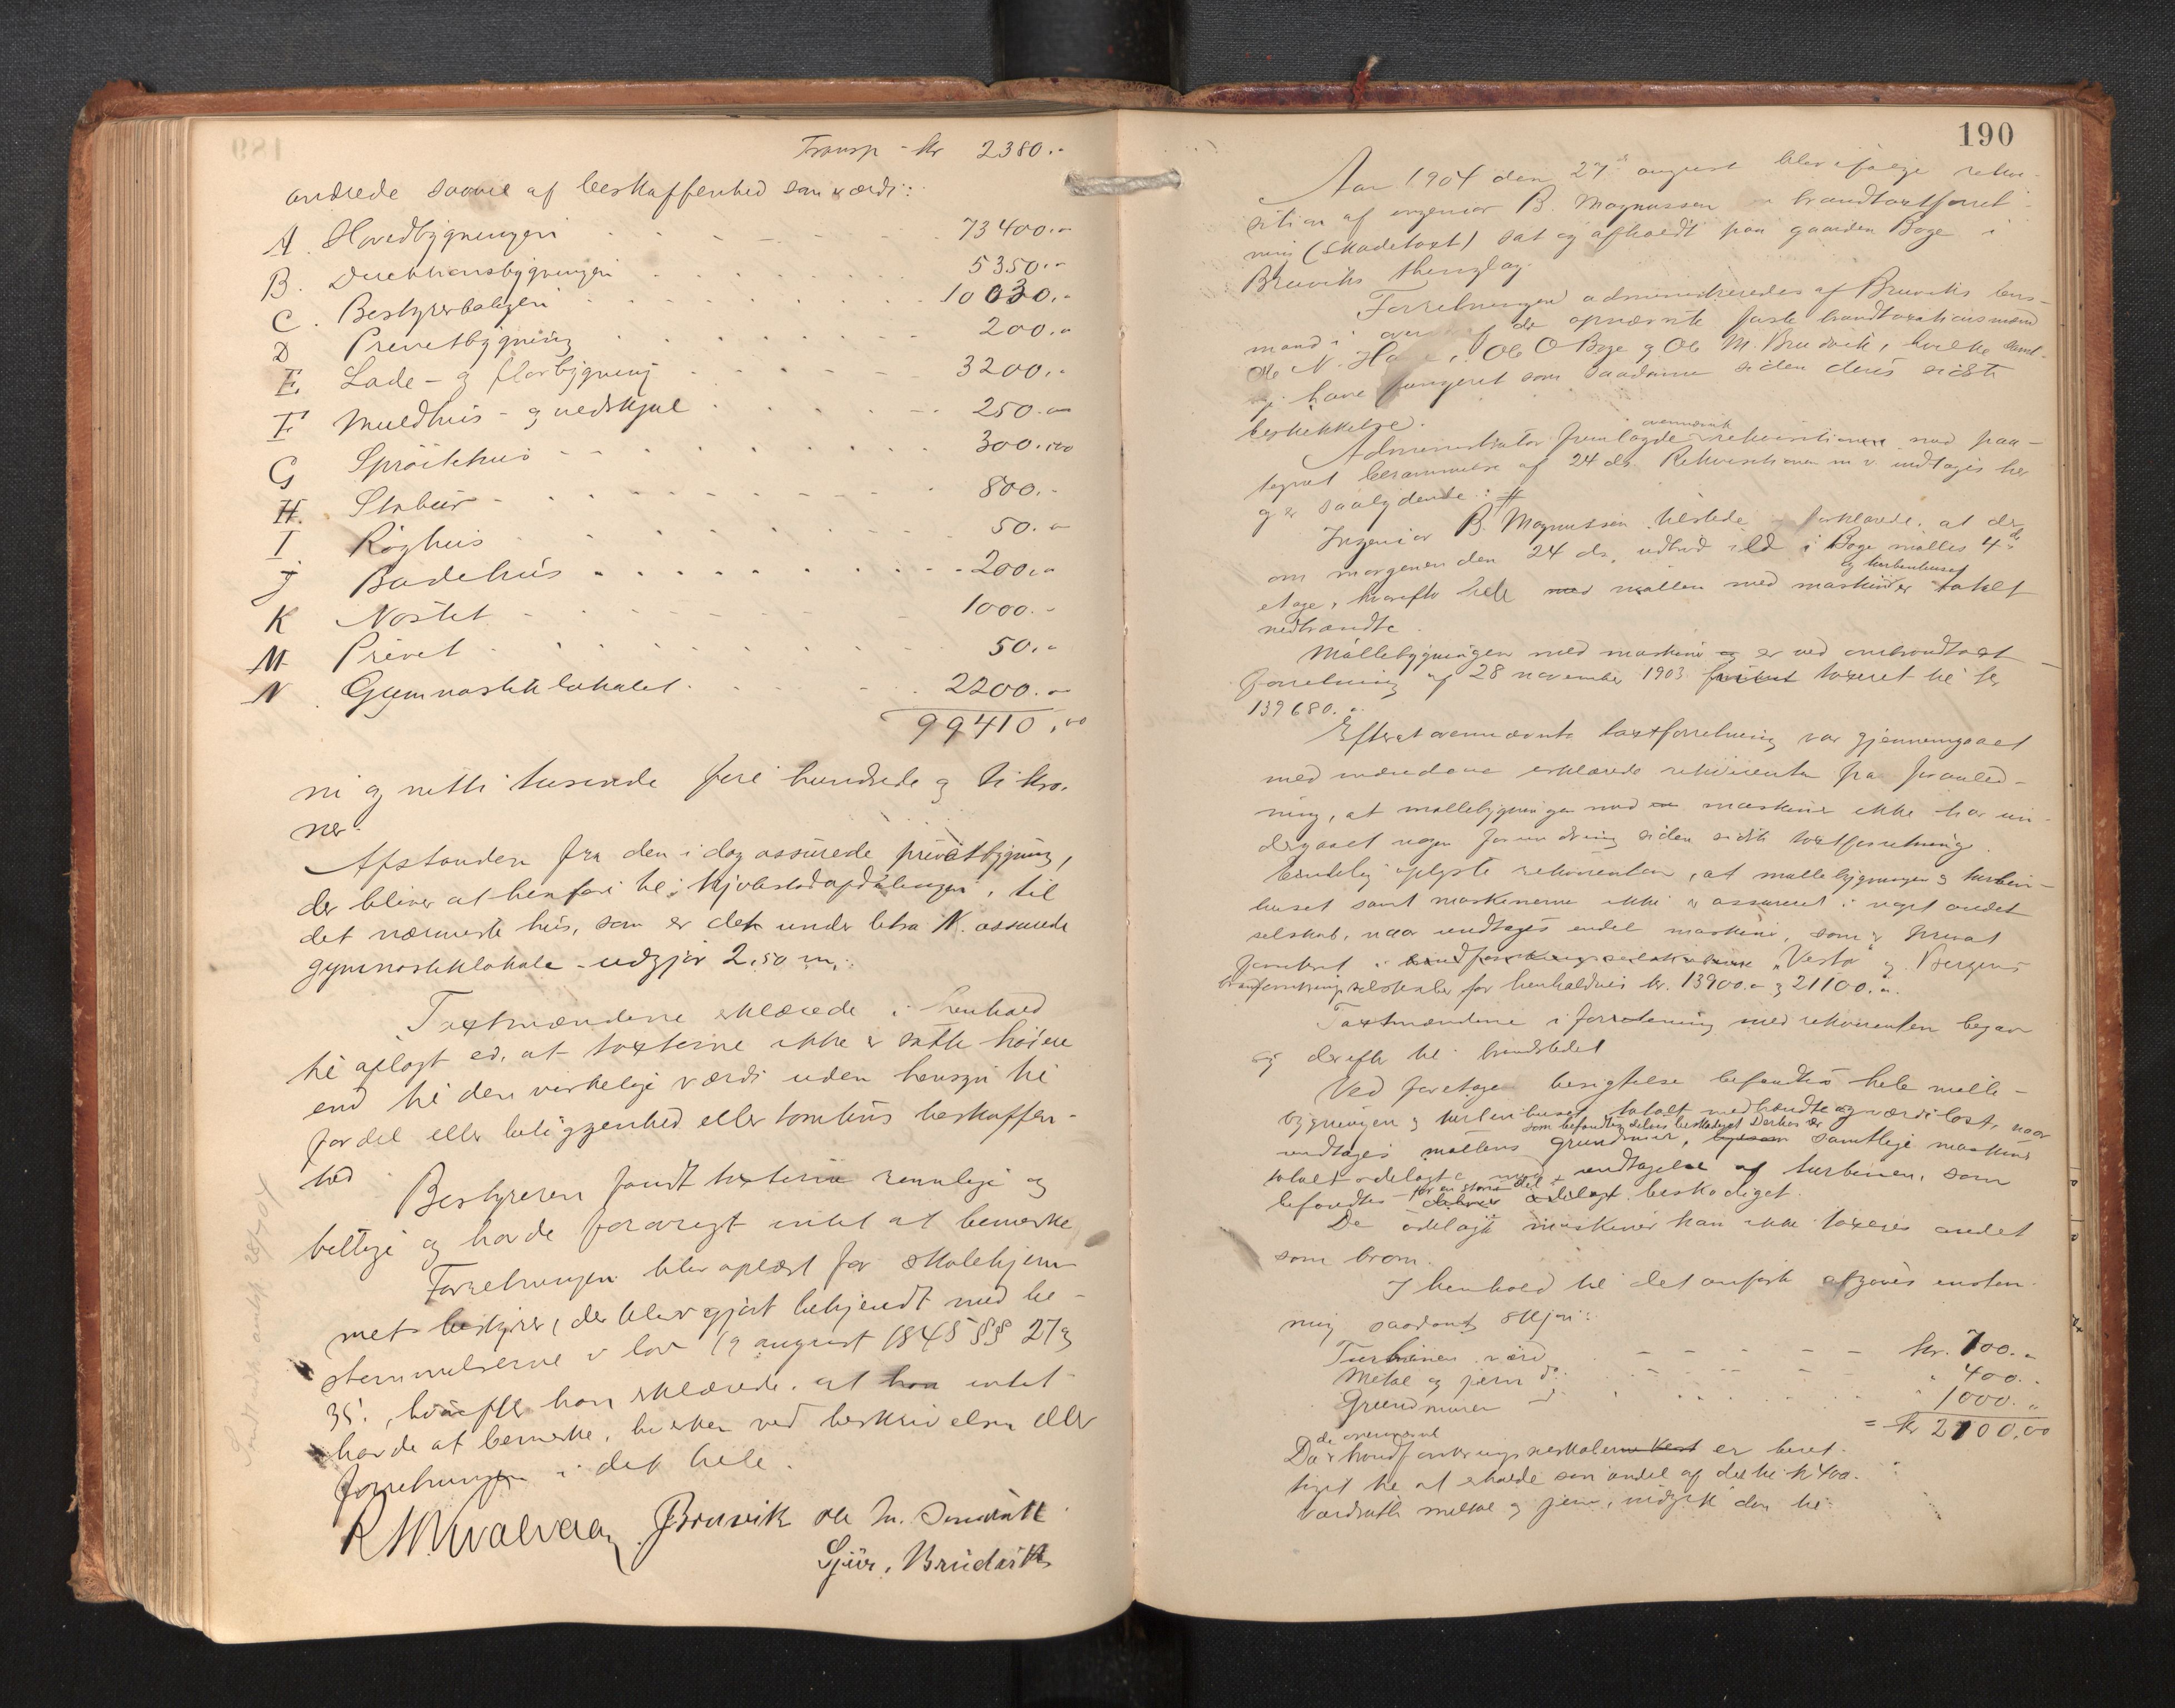 Transp - kr 2380.-
andrede saavel af beskaffenhed som værdi:
A. Hovedbygningen 73400.-
B. Direktionsbygningen 5350.-
C. Bestyrerboligen 10030.-
D Privetbygning 200.-
E Lade- og flørbygning 3200.-
F Muldhus- og vedskjul 250.-
G Sprøitehus 300.-
H. Stabur 800.-
I Røghus 50.-
J Badehus 200.-
K Nøstet 1000.-
M Privet 50.-
N Gymnastiklokalet 2200.-
99410.00
ni og nitti tusende fire hundrede og ti kro-
ner.
Afstanden fra den i dag assurede privetbygning,
der bliver at henføre til kjøbstadafdelingen, til
det nærmeste hus, som er det under litra N. assurede
gymnastiklokale - udgjør 2,50 m.
Taxtmændene erklærede i henhold
til aflagt ed, at taxterne ikke er satte høiere
end til den virkelige værdi uden hensyn til
fordel eller beliggenhed eller tomtens beskaffen-
hed
Bestyreren fandt taxterne rimelige og
billige og havde forøvrigt intet at bemerke
Forretningen blev oplæst for skolehjem-
mets bestyrer, der blev gjort bekjendt med be-
stemmelserne i lov 19 august 1845 §§ 27 og
35, hvorefter han erklærede, at han intet
havde at bemerke, hverken ved beskrivelsen eller
forretningen i det hele.
Bruvik Ole M.
Sjur. Brudvik
190
Aar 1904 den 27de august blev ifølge rekvi-
sition af ingeniør B. Magnussen brandtaxtforret-
ning (skadetaxt) sat og afholdt paa gaarden Boge i
Bruviks thinglag.
Forretningen administreredes af Bruviks lens-
mand i af de opnævnte faste brandtaxationsmænd
Ole N. Ole O Boge og Ole M. Brudvik, hvilke samt-
lige have fungeret som saadanne siden deres sidste
beskikkelse.
Administrator fremlagde ovennævnte rekvisition med paa-
tegnet berammelse af 24 ds. Rekvisitionen m v. indtages her
og er saalydende: #
Ingeniør B. Magnussen tilstede forklarede, at der
om morgenen den 24 ds. udbrød ild i Boge mølles 4de
etage, hvorefter hele møllen og turbinhuset med maskiner totalt
nedbrændte.
Møllebygningen med maskiner er ved ombrandtaxt-
forretning af 28 november 1903 taxeret til kr
139680.-
Efterat ovennævnte taxtforretning var gjennemgaaet
med mændene erklærede rekvirenten fra foranled-
ning, at møllebygningen med maskiner ikke har un-
dergaaet nogen forandring siden sidste taxtforretning.
Endelig oplyste rekvirenten, at møllebygningen og turbin-
huset samt maskinerne ikke er assureret i noget andet
selskab, naar undtages endel maskiner, som er
i "Vesta" og Bergens
brandforsikringsselskaber for henholdsvis kr. 13900.- og 21100.-
Taxtmændene i forretning med rekvirenten begav
sig derefter til brandstedet
Ved foretagen besigtelse befandtes hele mølle-
bygningen og turbinhuset totalt nedbrændte og værdiløst, naar
undtages møllens grundmur, som befandtes delvis beskadiget. Derhos er samtlige maskiner
totalt ødelagte med undtagelse af turbinen, som
befandtes for en større del beskadiget.
De ødelagte maskiner kan ikke taxeres andet
som
I henhold til det anførte afgaves enstem-
mig saadant skjøn:
Turbinen værd kr. 700.-
Metal og jern do. " 400.-
Grundmuren do " 1000.-
= kr 2100.00
Da de ovennævnte brandforsikringsselskaber er beret-
tiget til at erholde sin andel af det til kr 400.-
værdsatte metal og jern, udgjør den til: